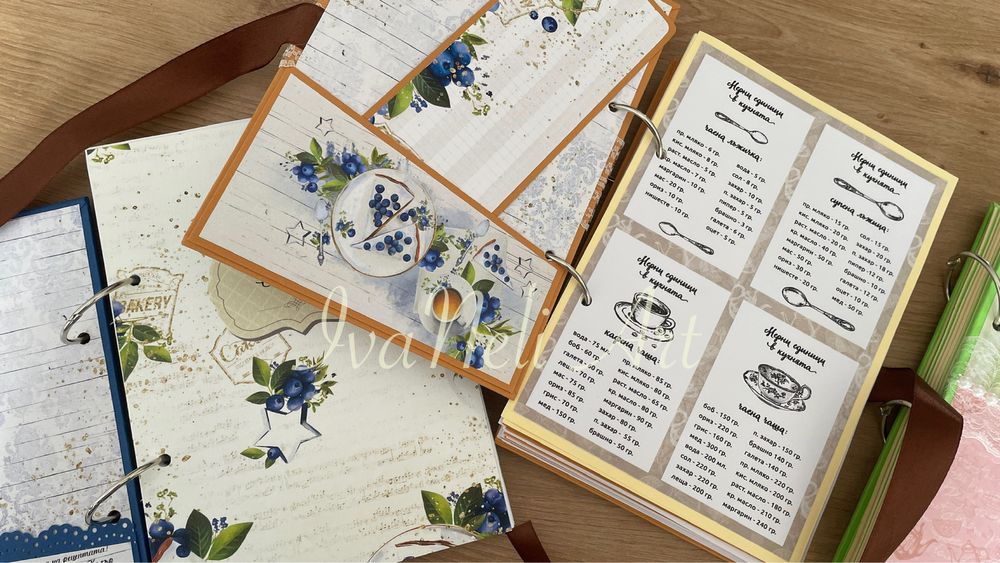 Мерни единици
в кухнята...
чаена лъжичка:
пр. мляко - 6 гр.
кис. мляко - 8 гр.
раст. масло - 5 гр.
масло - 7 гр.
маргарин - 10 гр.
мас - 20 гр.
ориз - 10 гр.
нишесте - 10 гр.
вода - 5 гр.
сол - 8 гр.
захар - 10 гр.
п. захар - 5 гр.
пипер - 5 гр.
брашно - 5 гр.
галета - 6 гр.
оцет - 5 гр.
Мерни единици
в кухнята...
супена лъжица:
пр. мляко - 15 гр.
кис. мляко - 20 гр.
раст. масло - 20 гр.
кр. масло - 40 гр.
маргарин - 50 гр.
мас - 50 гр.
ориз - 30 гр.
нишесте - 20 гр.
сол - 15 гр.
захар - 20 гр.
п. захар - 18 гр.
пипер - 12 гр.
брашно - 10 гр.
галета - 10 гр.
оцет - 10 гр.
мед - 50 гр.
Мерни единици
в кухнята...
кафена чаша:
вода - 75 мл.
боб - 60 гр.
галета - 90 гр.
леща - 70 гр.
мас - 75 гр.
ориз - 85 гр.
грис - 70 гр.
мед - 150 гр.
пр. мляко - 85 гр.
кис. мляко - 80 гр.
раст. масло - 65 гр.
кр. масло - 80 гр.
маргарин - 90 гр.
захар - 80 гр.
п. захар - 55 гр.
брашно - 50 гр.
Мерни единици
в кухнята...
чаена чаша:
боб - 150 гр.
ориз - 220 гр.
грис - 160 гр.
мед - 300 гр.
вода - 200 мл.
сол - 220 гр.
захар - 220 гр.
леща - 200 гр.
п. захар - 150 гр.
брашно - 140 гр.
галета - 140 гр.
пр. мляко - 220 гр.
кис. мляко - 200 гр.
раст. масло - 180 гр.
кр. масло - 210 гр.
маргарин - 240 гр.
BAKERY
IvaNeli Art
рецептата!